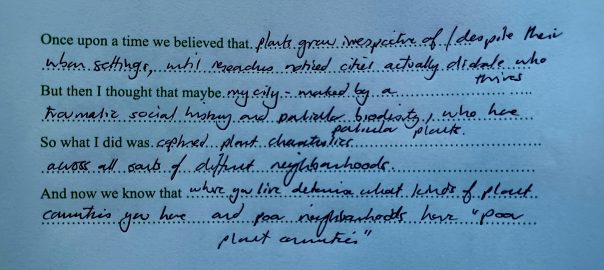 Once upon a time we believed that plants grow irrespective of / despite their
urban settings, until researches noticed cities actually dictate who
thrives
But then I thought that maybe my city - marked by a
traumatic social history and particular biodiversity, who have
particular plants.
So what I did was captured plant characteristics
across all sorts of different neighbourhoods.
And now we know that where you live determines what kinds of plant
communities you have and poor neighbourhoods have "poor
plant communities"